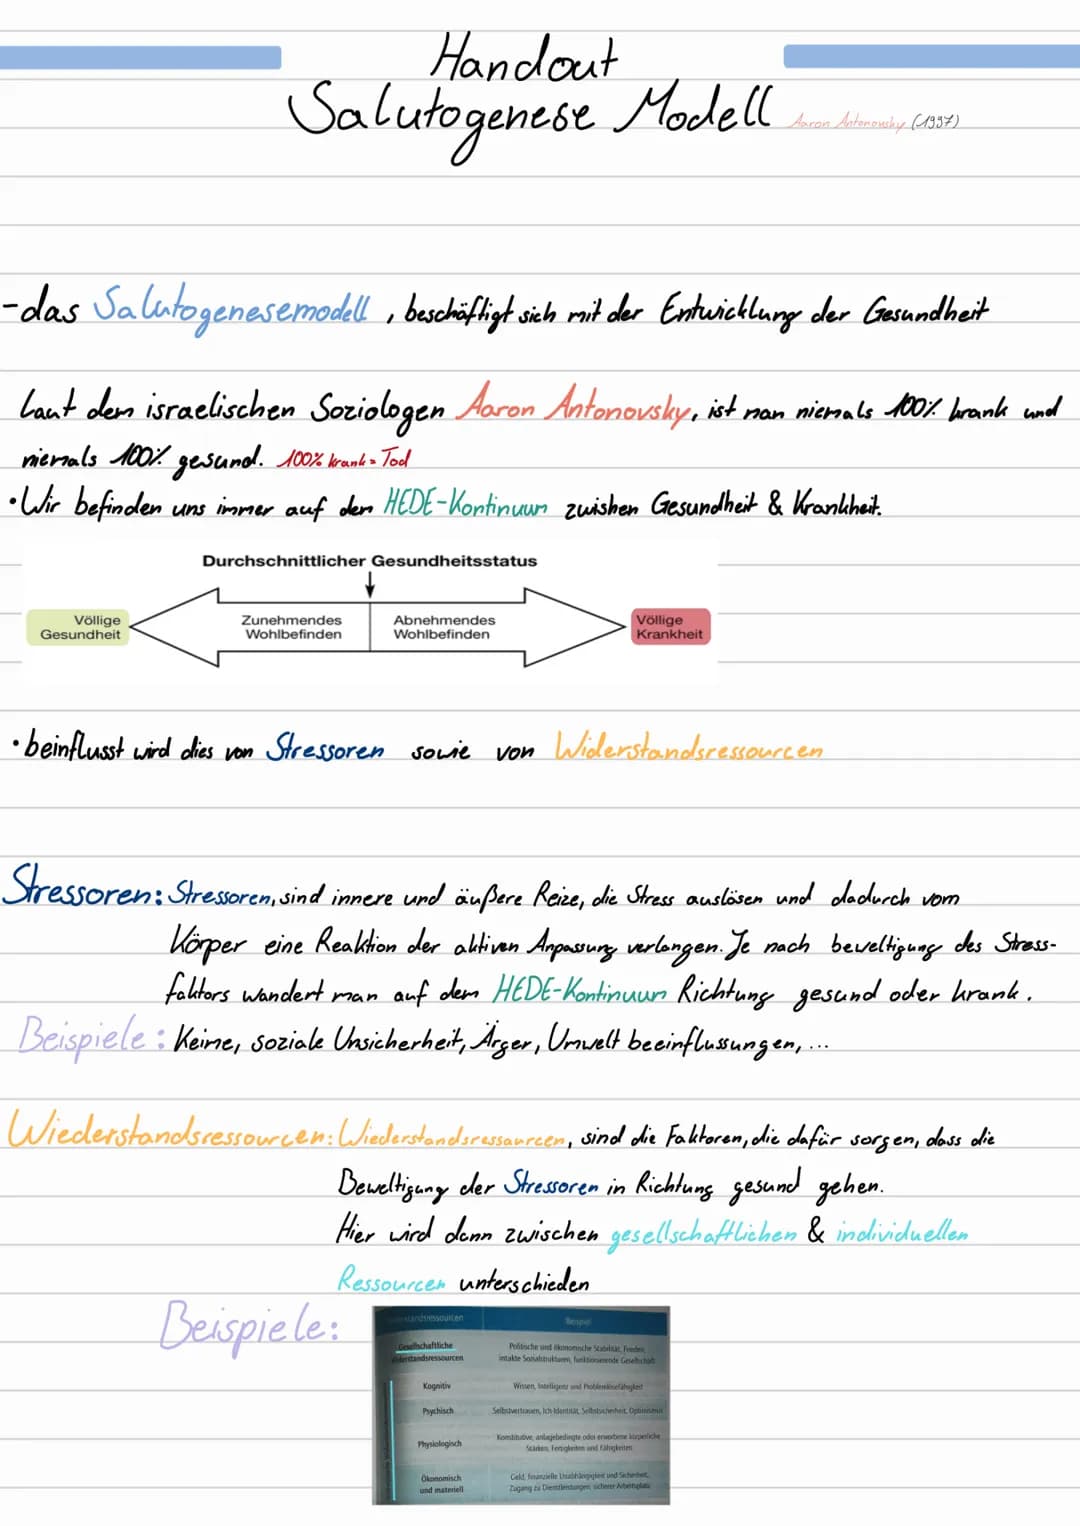 Handout
Salutogenese Modell Aaron Antonovsky (1997)
-das Salutogenesemodell, beschäftigt sich mit der Entwicklung der Gesundheit
Laut dem israelischen Soziologen Aaron Antonovsky, ist man niemals 100% krank und
niemals 100% gesund. 100% krank = Tod
•Wir befinden uns immer auf dem HEDE-Kontinuum zwishen Gesundheit & Krankheit.
Durchschnittlicher Gesundheitsstatus
Völlige Gesundheit
Zunehmendes Wohlbefinden
Abnehmendes Wohlbefinden
Völlige Krankheit
•beinflusst wird dies von Stressoren sowie von Widerstandsressourcen
Stressoren: Stressoren, sind innere und äußere Reize, die Stress auslösen und dadurch vom
Körper eine Reaktion der aktiven Anpassung verlangen. Je nach beweltigung des Stress-
faktors wandert man auf dem HEDE-Kontinuum Richtung gesund oder krank.
Beispiele: Keime, soziale Unsicherheit, Ärger, Umwelt beeinflussungen, ...
Wiederstandsressourcen: Wiederstandsressourcen, sind die Faktoren, die dafür sorgen, dass die
Beweltigung der Stressoren in Richtung gesund gehen.
Hier wird dann zwischen gesellschaftlichen & individuellen
Ressourcen unterschieden
Beispiele:
Beispiel
Gesellschaftliche
Politische und ökonomische Stabilität, Frieden,
intakte Sozialstrukturen, funktionierende Gesellschaft
Kognitiv
Wissen, Intelligenz und Problemlösefähigkeit
Psychisch
Selbstvertrauen, Ich-Identität, Selbstsicherheit, Optimismus
Physiologisch
Konstitutive, anlagebedingte oder erworbene körperliche
Stärken, Fertigkeiten und Fähigkeiten
Ökonomisch
und materiell
Geld, finanzielle Unabhängigkeit und Sicherheit,
Zugang zu Dienstleistungen, sicherer Arbeitsplatz